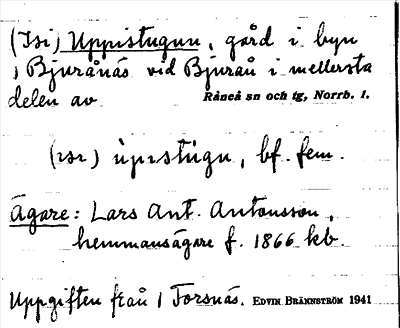 (Isi) Uppistugun, gård i byn
i Bjurånäs vid Bjurån i mellersta
delen av Råneå sn och tg, Norrb. l.
(ısı) ùpıstúgu, bf. fem.
Ägare: Lars Ant. Antonsson,
hemmansägare f. 1866 kb.
Uppgiften från 1 Torsnäs. EDVIN BRÄNNSTRÖM 1941